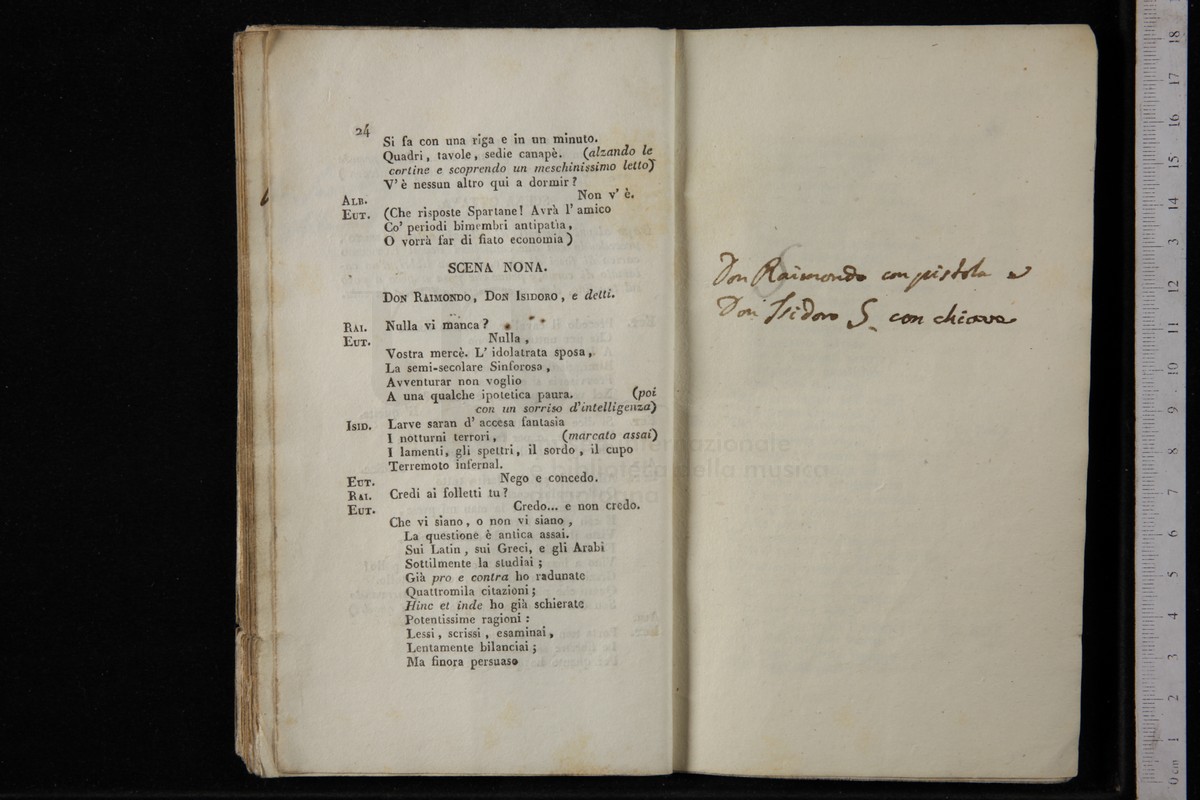 24
Si fa con una riga e in un minuto.
Quadri, tavole, sedie canapè. (alzando le
cortine e scoprendo un meschinissimo letto)
V' è nessun altro qui a dormir?
ALB. Non v' è.
EUT. (Che risposte Spartane! Avrà l' amico
Co' periodi bimembri antipatìa,
O vorrà far di fiato economia)
SCENA NONA.
DON RAIMONDO, DON ISIDORO, e detti.
RAI. Nulla vi manca?
EUT. Nulla,
Vostra mercè. L' idolatrata sposa,
La semi-secolare Sinforosa,
Avventurar non voglio
A una qualche ipotetica paura. (poi
con un sorriso d'intelligenza)
ISID. Larve saran d' accesa fantasia
I notturni terrori, (marcato assai)
I lamenti, gli spettri, il sordo, il cupo
Terremoto infernal.
EUT. Nego e concedo.
RAI. Credi ai folletti tu?
EUT. Credo... e non credo.
Che vi siano, o non vi siano,
La questione è antica assai.
Sui Latin, sui Greci, e gli Arabi
Sottilmente la studiai;
Già pro e contra ho radunate
Quattromila citazioni;
Hinc et inde ho già schierate
Potentissime ragioni:
Lessi, scrissi, esaminai,
Lentamente bilanciai;
Ma finora persuaso
Don Raimondo con pistola e
Don Isidoro S. con chiave
internazionale
e biblioteca della musica
0 cm 1 2 3 4 5 6 7 8 9 10 11 12 13 14 15 16 17 18